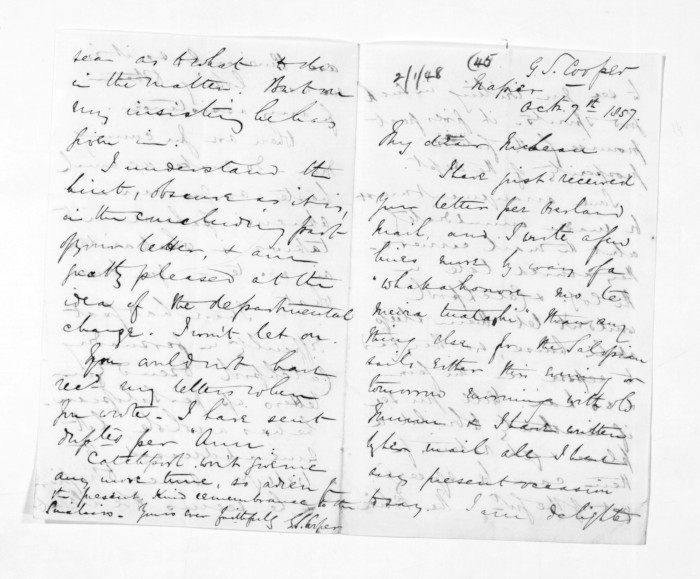 2/1/48
(45
G.S. Cooper
Napier
Oct. 7th 1857.
My dear McLean
I have just received
your letter per Overland
mail, and I write a few
lines more by way of a
"whakahonore no te
than any
thing else, for the Salopian
sails either this evening or
tomorrow morning with old
& I have written
mail all I have
any present occasion
to say. I am delighted
sea as to what to do
in the matter. But on
my insisting he has
given in.
I understand the
hint, obscure as it is,
in the concluding part
of your letter, & am
greatly pleased at the
idea of the departmental
change. I won't let on.
You could not have
recd. my letters when
you wrote. I have sent
duptes per "Ann".
Catchpool won't give me
any more time, so adieu for
the present. Kind remembrance to the
Yours ever faithfully G.S. Cooper